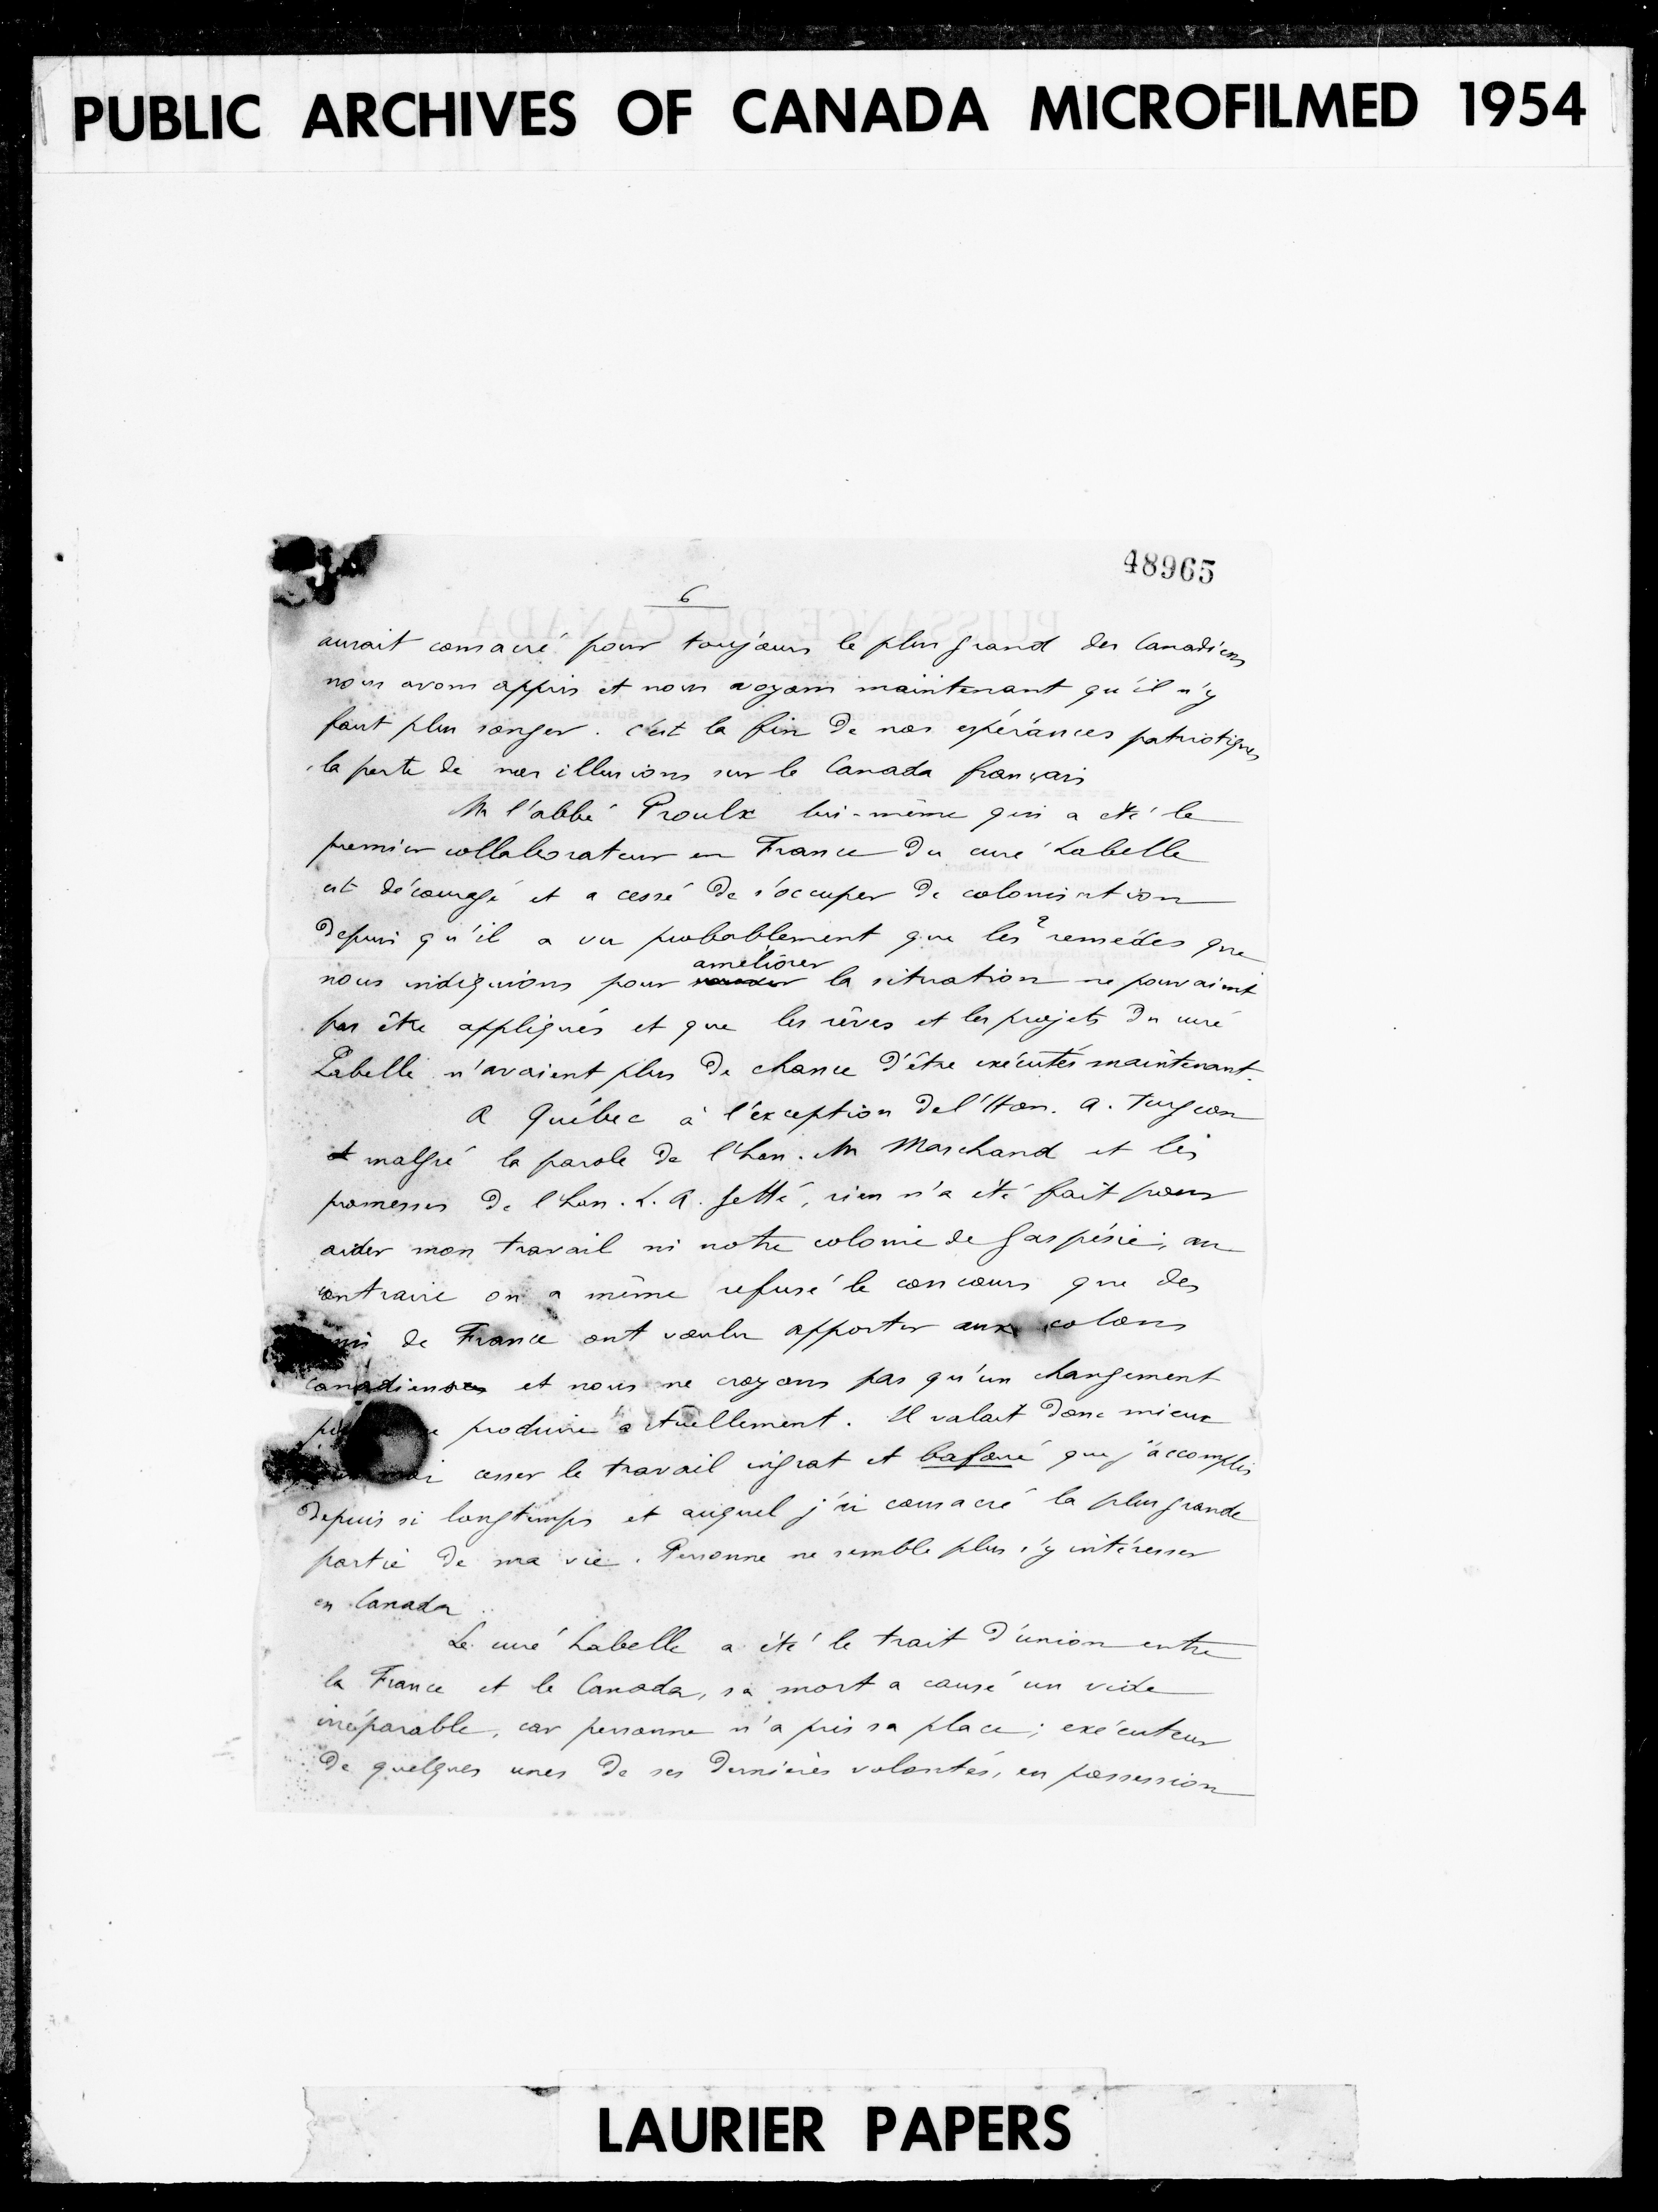 PUBLIC ARCHIVES OF CANADA MICROFILMED 1954
48965
6
aurait consacré pour toujours le plus grand des Canadiens
nous avons appris et nous voyons maintenant qu'il n'y
faut plus songer. c'est la fin de nos espérances patriotiques
la perte de nos illusions sur le Canada français
M l'abbé Proulx lui-même qui a été le
premier collaborateur en France du curé Labelle
est découragé et a cessé de s'occuper de colonisation
depuis qu'il a vu probablement que les remèdes que
nous indiquions pour améliorer la situation ne pouvaient
pas être appliqués et que les rêves et les projets du curé
Labelle n'avaient plus de chance d'être exécutés maintenant.
A Québec à l'exception de l'Hon. A. Turgeon
et malgré la parole de l'hon. M Marchand et les
promesses de l'hon. L. A. Jetté, rien n'a été fait pour
aider mon travail ni notre colonie de Gaspésie; au
contraire on a même refusé le concours que des
de France ont voulu apporter aux colons
canadiens et nous ne croyons pas qu'un changement
produire actuellement. Il valait donc mieux
cesser le travail ingrat et bafoué que j'accomplis
depuis si longtemps et auquel j'ai consacré la plus grande
partie de ma vie. Personne ne semble plus s'y intéresser
en Canada
Le curé Labelle a été le trait d'union entre
la France et le Canada, sa mort a causé un vide
irréparable, car personne n'a pris sa place; exécuteur
de quelques unes de ses dernières volontés, en possession
LAURIER PAPERS